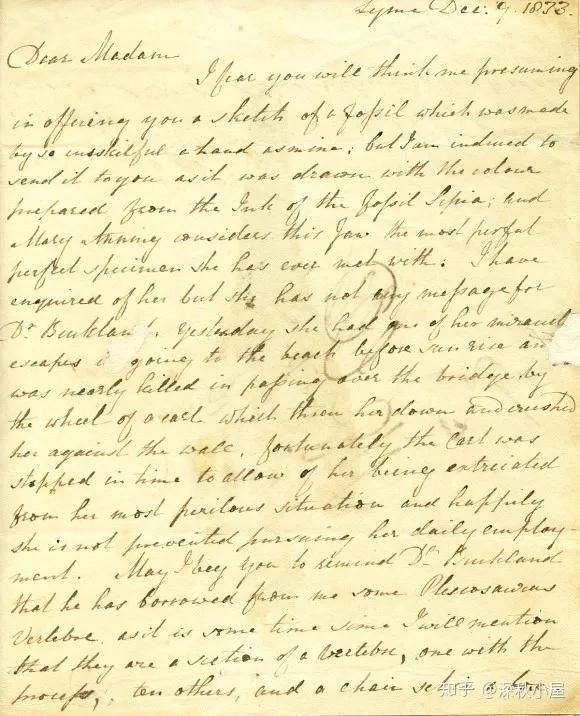 Lyme Dec: 9. 1833.
Dear Madam
I fear you will think me presuming
in offering you a sketch of a fossil which was made
by so unskilful a hand as mine; but I am induced to
send it to you as it was drawn with the colour
prepared from the Ink of the Fossil Sepia; and
Mary Anning considers this Jaw the most perfect
perfect specimen she has ever met with: I have
enquired of her but she has not any message for
Dr Buckland. Yesterday she had one of her miracul
escapes in going to the beach before sun rise and
was nearly killed in passing over the bridge by
the wheel of a cart which threw her down and crushed
her against the wall. Fortunately the Cart was
stopped in time to allow of her being extricated
from her most perilous situation and happily
she is not prevented pursuing her daily employ-
ment. May I beg you to remind Dr Buckland
that he has borrowed from me some Plesiosaurus
Vertebræ, as it is some time since I will mention
that they are a section of a vertebræ, one with the
process, ten others, and a chain
知乎 @深秋小屋